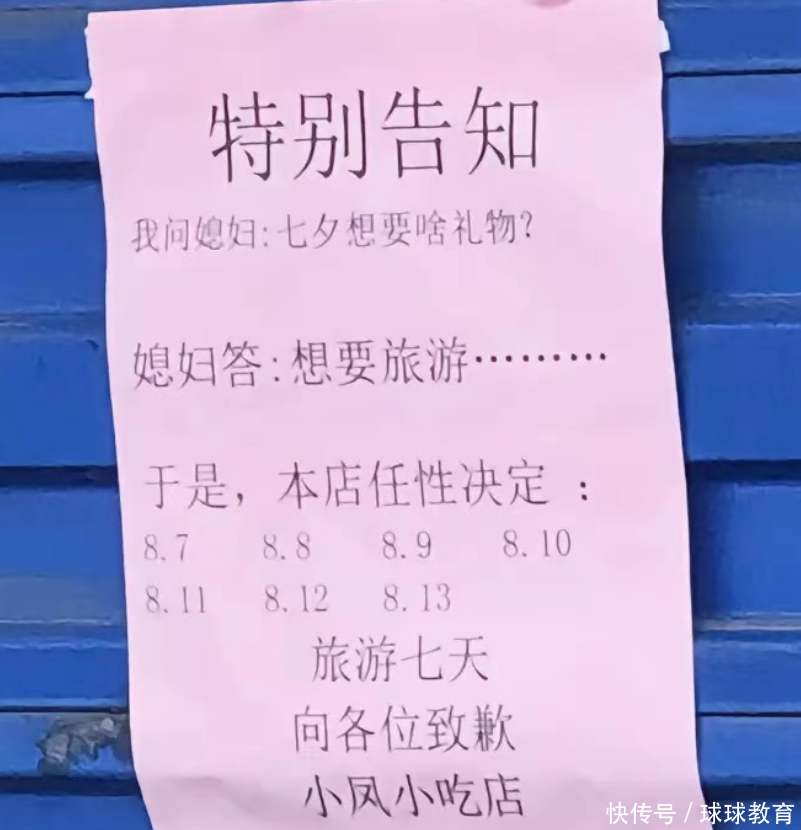 特别告知
我问媳妇:七夕想要啥礼物?
媳妇答:想要旅游………
于是，本店任性决定：
8.7 8.8 8.9 8.10
8.11 8.12 8.13
旅游七天
向各位致歉
小凤小吃店
快传号 / 球球教育